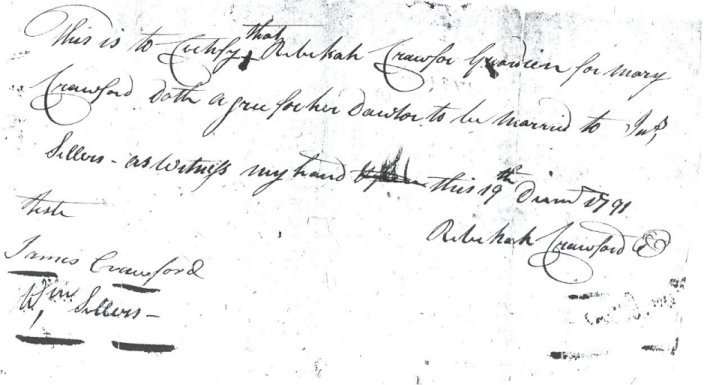 This is to Certify that Rebekah Crawfor Guardien for mary
Crawford doth agree for her Dawtor to be married to
Sellers - as witness my hand this 19th 1791
Rebekah Crawford
teste
James Crawford
Sellers -